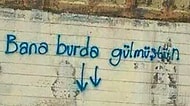 Bana burda gülmüştün